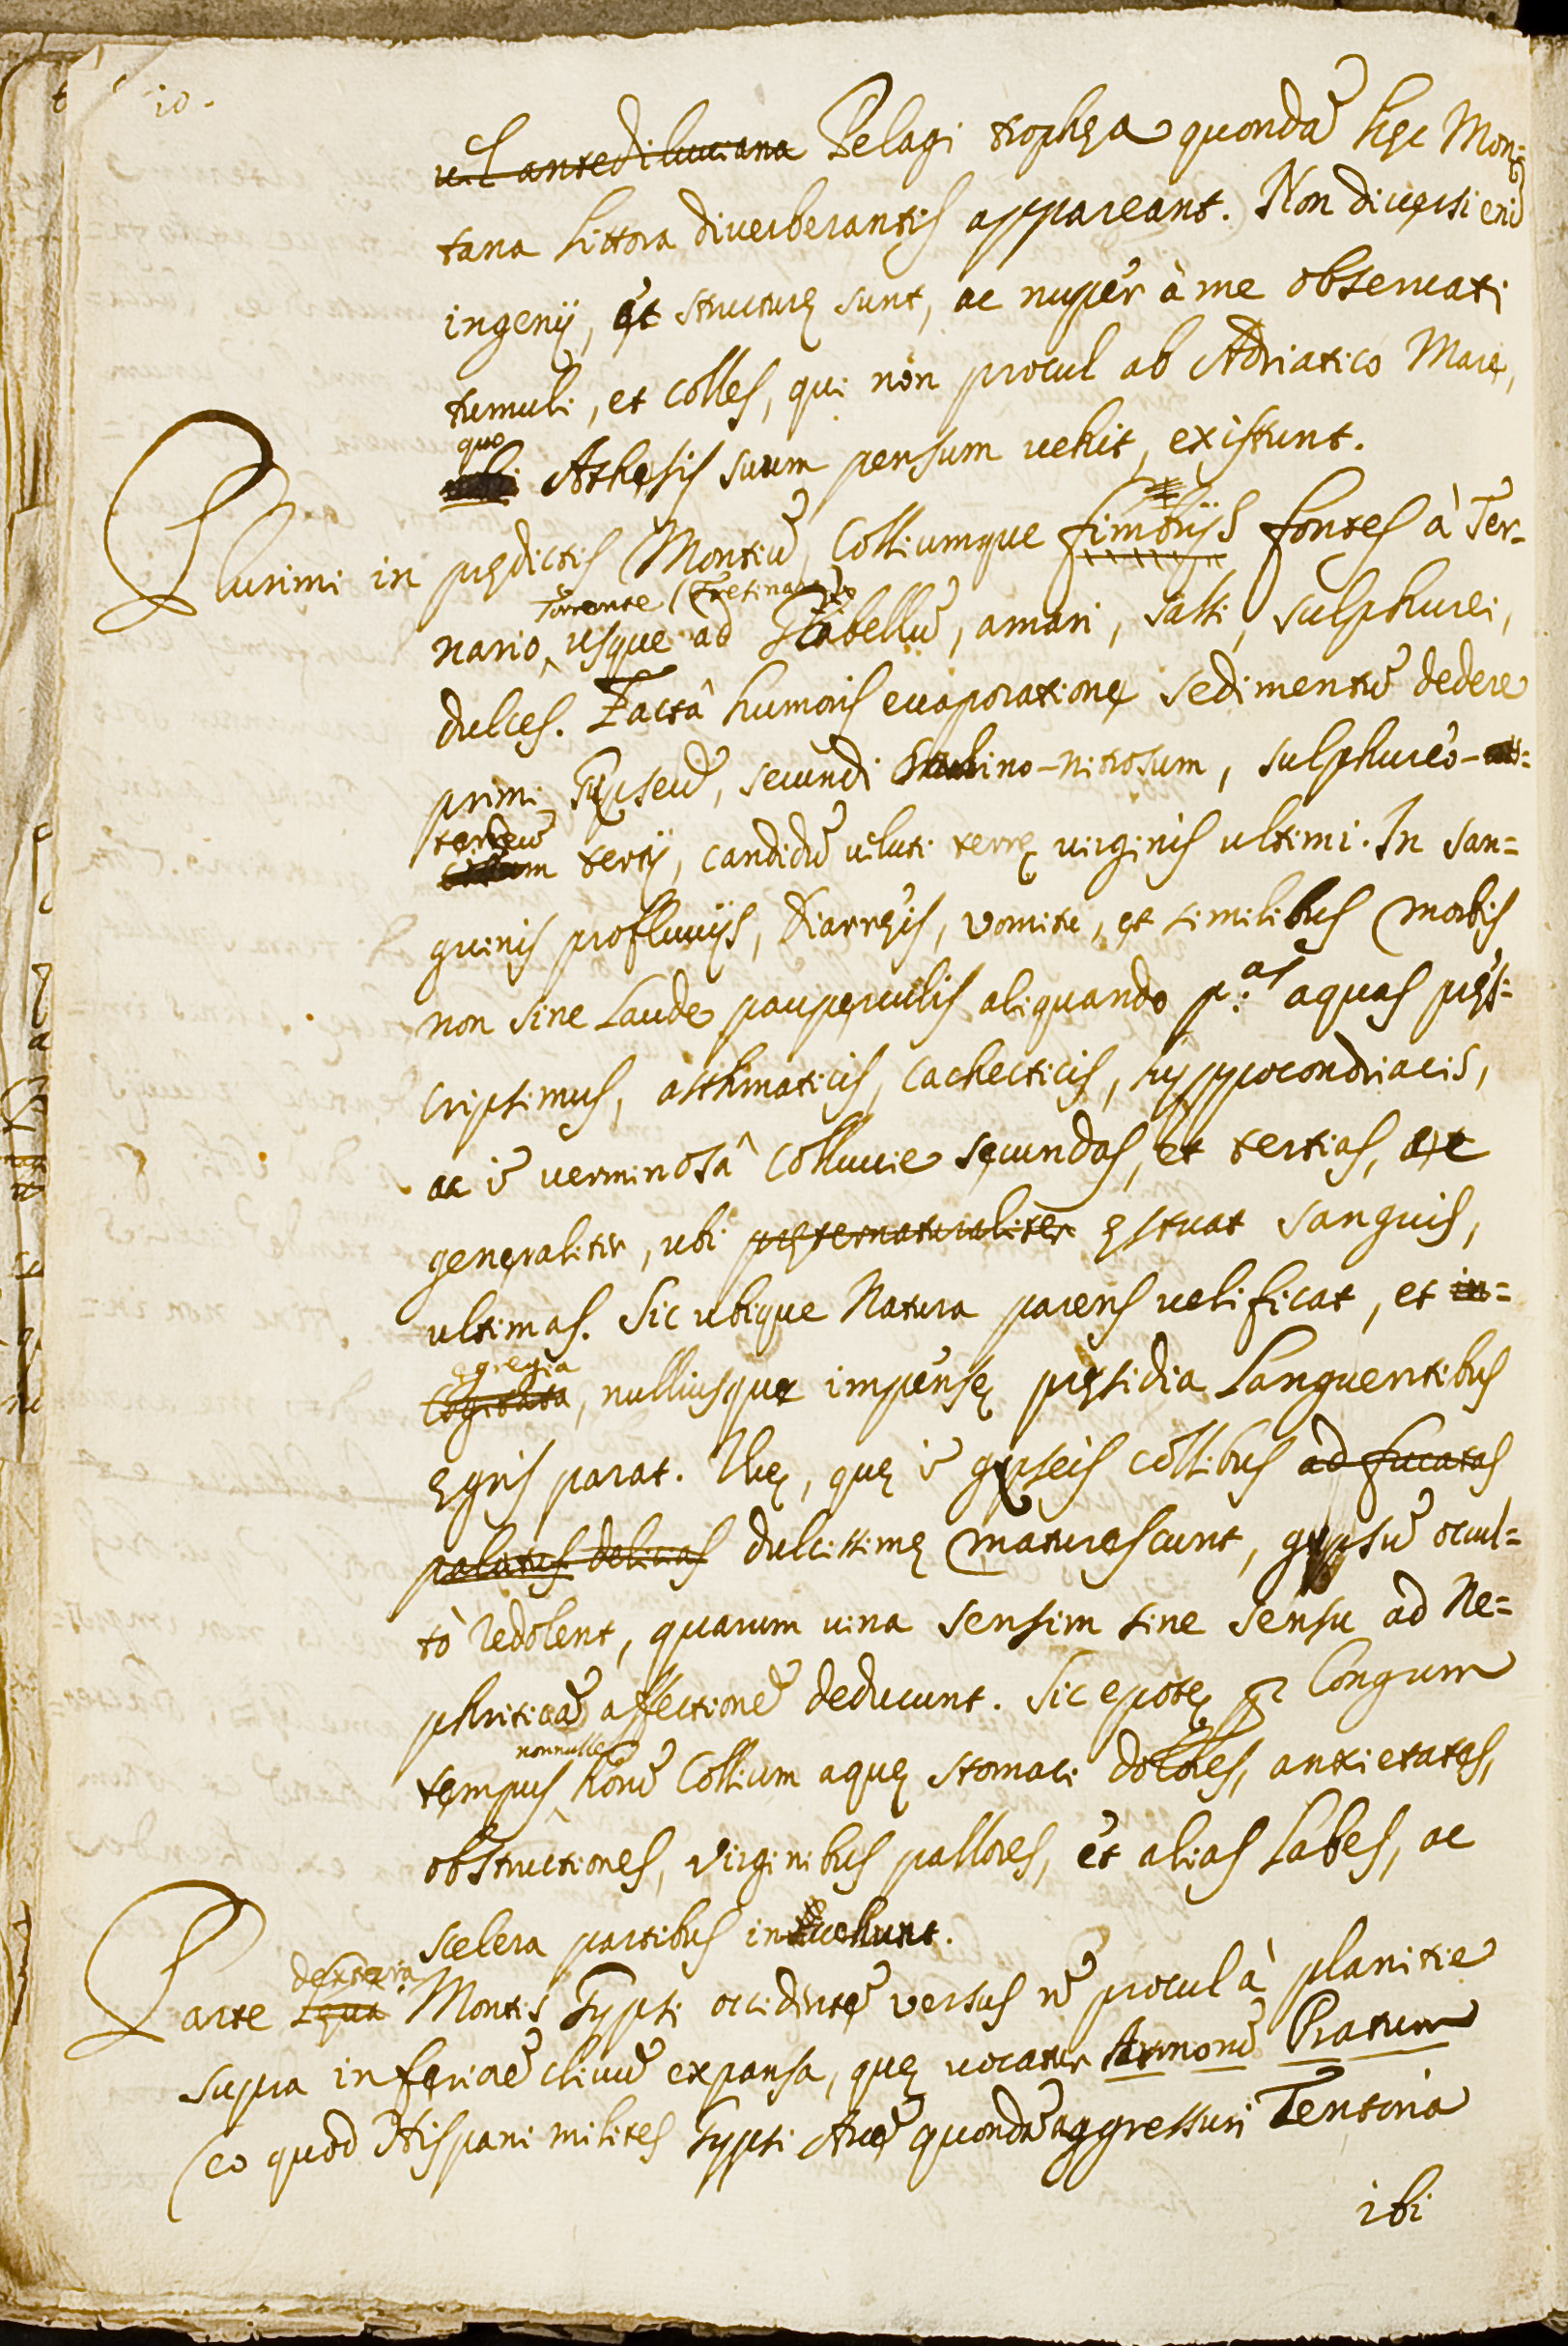 10.
vel antediluuiana Pelagi trophęa quondā hęc Mon=
tana littora diuerberantis appareant. Non diuersi enī
ingenij, et structurę sunt, ac nuper à me obseruati
tumuli, et colles, qui non procul ab Adriatico Mare,
quo
Athesis suum pensum uehit, existunt.
Plurimi in prędictis Montiū, Colliumque fimbrijs fontes à Ter-
torrente
nario, usque ad Flabellū, amari, salsi, sulphurei,
dulces. Factâ humoris euaporatione sedimentū dedere
primi Gypseū, secundi -nitrosum, sulphureo-
terreū
tertij, candidū veluti terrę virginis ultimi. In san=
guinis profluuijs, diarręis, vomitu, et similibus morbis
non sine laude pauperculis aliquando p:as aquas pręs=
cripsimus, asthmaticis, cachecticis, hyppocondriacis,
ac ī verminosâ colluuie secundas, et tertias, ac
generaliter, ubi pręternaturaliter ęstuat sanguis,
ultimas. Sic ubique Natura parens uelificat, et in=
egregia
cogitata, nulliusque impensę pręsidia languentibus
ęgris parat. Uuę, quę ī gypseis collibus ad fucatas
palatus delicias dulcissimę maturescunt, gypsū occul=
tò redolent, quarum uina sensim sine sensu ad Ne=
phriticā affectionē deducunt. Sic epotę per longum
nonnullę
tempus horū Collium aquę stomaci dolores, anxietates,
obstructiones, virginibus pallores, et alias labes, ac
scelera partibus inuehunt.
dexteria
Parte Montis Gypsi occidentē versus nō procul à planitie
supra inferiorē cliuū expansa, quę uocatur Armorū Pratum
eo quod Hispani milites Gypsi Arcē quondā aggressuri Tentoria
ibi